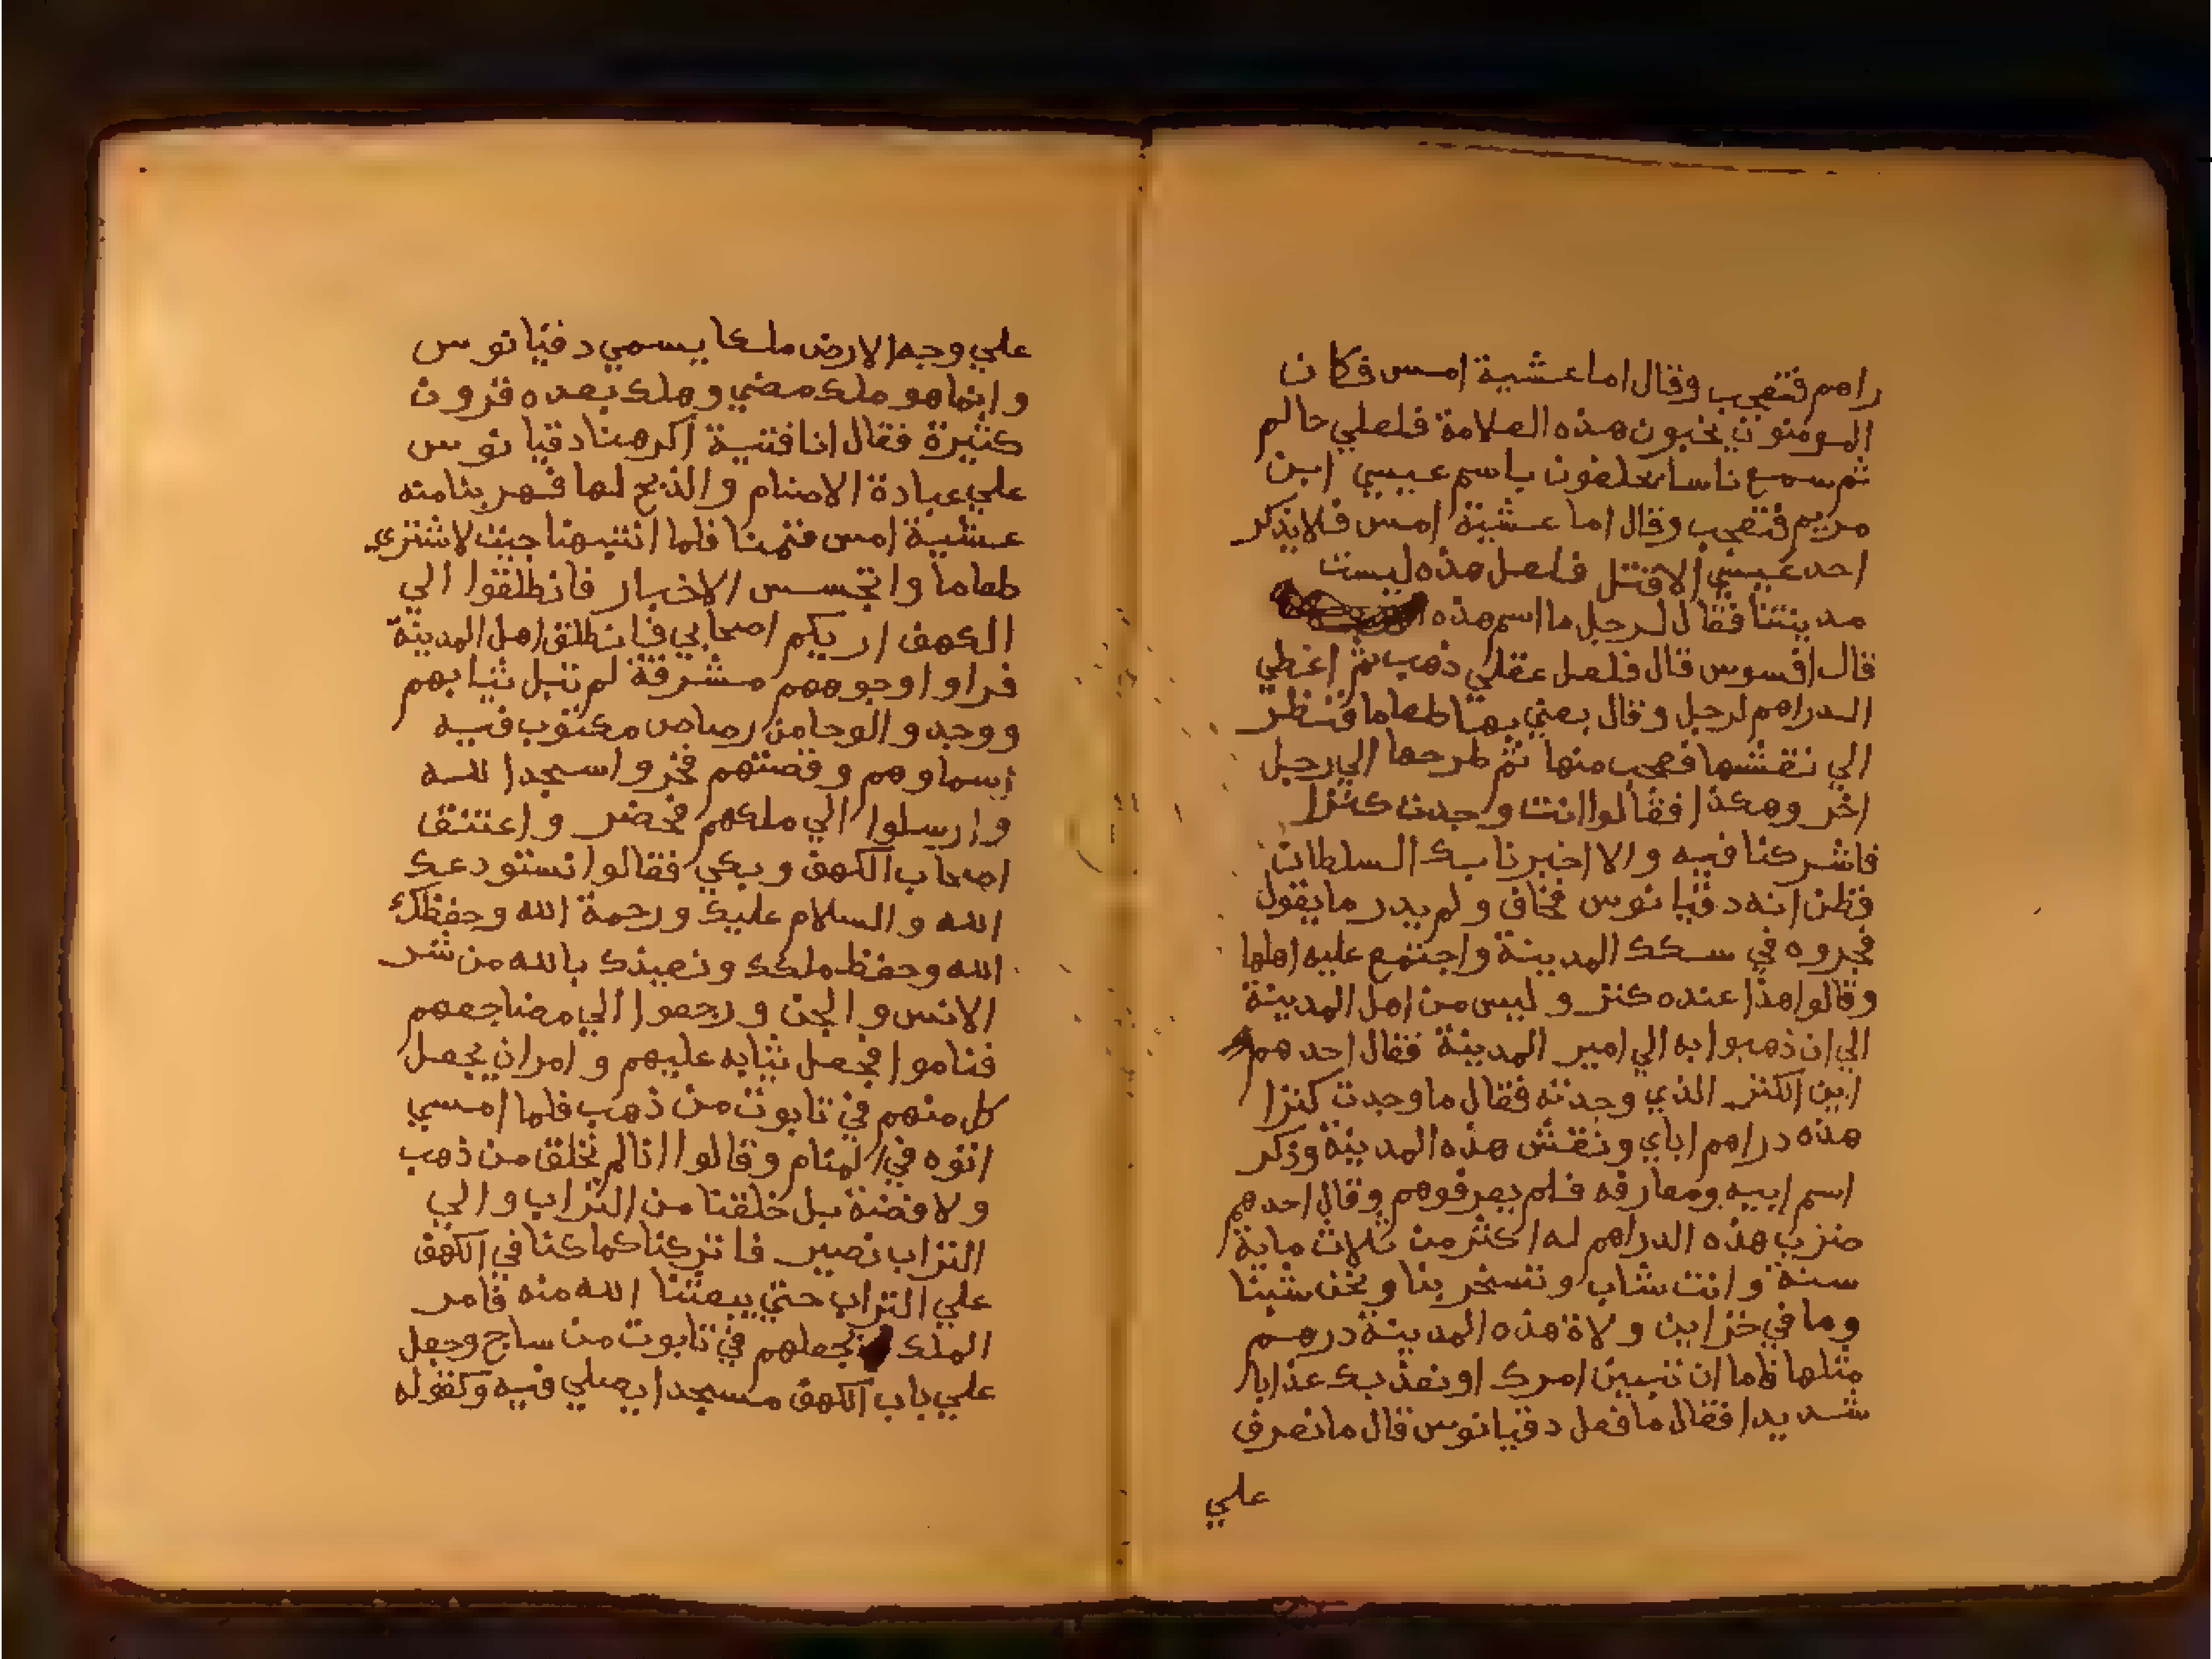 راهم فتعجب وقال اما عشية امس فكان
المومنون يخبون هذه العلامة فلعلي حالم
ثم سمع ناسا يحلفون باسم عيسي ابن
مريم فتعجب وقال اما عشية امس فلا يذكر
احد عيسي الا قتل فلعل هذه ليست
مدينتنا فقال لرجل ما اسم هذه
قال افسوس قال فلعل عقلي ذهب ثم اعطي
الدراهم لرجل وقال بعني بها طعاما فنظر
الي نقشها فعجب منها ثم طرحها الي رجل
اخر وهكذا فقالوا انت وجدت كنزا
فاشركنا فيه والا اخبرنا بك السلطان
فظن انه دقيانوس فخاف ولم يدر ما يقول
فجروه في سكك المدينة واجتمع عليه اهلها
وقالوا هذا عنده كنز وليس من اهل المدينة
الي ان ذهبوا به الي امير المدينة فقال احدهم
اين الكنز الذي وجدته فقال ما وجدت كنزا
هذه دراهم اباي ونقش هذه المدينة وذكر
اسم ابيه ومعارفه فلم يعرفوهم وقال احدهم
ضرب هذه الدراهم له اكثر من ثلاث ماية
سنة وانت شاب وتسخر بنا ونحن شبنا
وما في خزاين ولاة هذه المدينة درهم
مثلها فاما ان تبين امرك او نعذبك عذابا
شديدا فقال ما فعل دقيانوس قال ما نعرف
علي
علي وجه الارض ملكا يسمي دقيانوس
وانما هو ملك مضي وهلك بعده قرون
كثيرة فقال انا فتية اكرهنا دقيانوس
علي عبادة الاصنام والذبح لها فهربنا منه
عشية امس فنمنا فلما انتبهنا جيت لاشتري
طعاما واتجسس الاخبار فانطلقوا الي
الكهف اريكم اصحابي فانطلق اهل المدينة
فراوا وجوههم مشرقة لم تبل ثيابهم
ووجدوا لوحا من رصاص مكتوب فيه
اسماوهم وقصتهم فخروا سجدا لله
وارسلوا الي ملكهم فحضر واعتنق
اصحاب الكهف وبكي فقالوا نستودعك
الله والسلام عليك ورحمة الله وحفظك
الله وحفظ ملكك ونعيذك بالله من شر
الانس والجن ورجعوا الي مضاجعهم
فناموا فجعل ثيابه عليهم وامر ان يجعل
كل منهم في تابوت من ذهب فلما امسي
اتوه في المنام وقالوا انا لم نخلق من ذهب
ولا فضة بل خلقنا من التراب والي
التراب نصير فاتركنا كما كنا في الكهف
علي التراب حتي يبعثنا الله منه فامر
الملك نجعلهم في تابوت من ساج وجعل
علي باب الكهف مسجدا يصلي فيه وكقوله